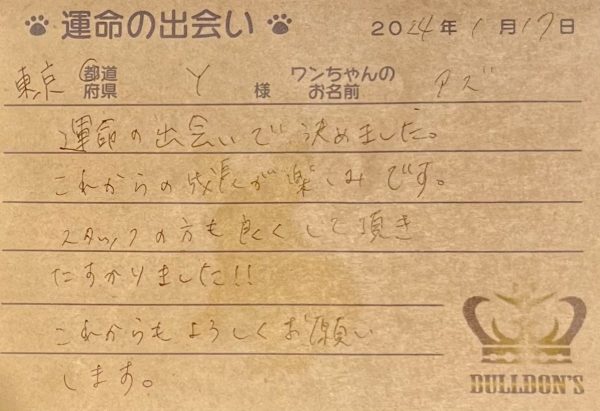 運命の出会い 2024年1月17日
東京 都道府県 Y 様 ワンちゃんのお名前 アズ
運命の出会いで決めました。
これからの成長が楽しみです。
スタッフの方も良くして頂き
たすかりました!!
これからもよろしくお願い
します。
BULLDON'S